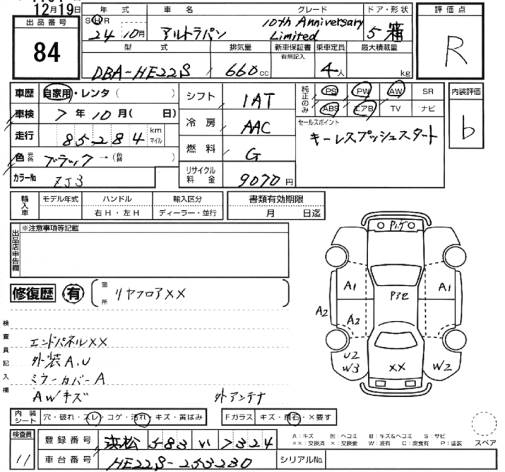 12月19日
出品番号
84
年式 車名 グレード ドア・形状 評価点
S・H・R 24年 10月 アルトラパン 10th Anniversary Limited 5 箱 R
型式 排気量 新車保証書 有無記入 乗車定員 最大積載量
DBA-HE22S 660cc 4人 kg
車歴 自家用・レンタ( )
車検 7年10月( 日)
走行 85284 km マイル
色 ブラック→
カラーNo ZJ3
シフト 1AT
冷房 AAC
燃料 G
リサイクル料金 9070円
純正のみ PS PW AW SR
ABS エアB TV ナビ
セールスポイント
キーレスプッシュスタート
内装評価
b
輸入車 モデル年式 ハンドル 輸入区分
右H・左H ディーラー・並行
書類有効期限
月 日迄
出品店申告欄 ※注意事項等記載
修復歴 有 箇所 リヤフロアXX
検査員記入欄
エンドパネルXX
外装A.U
ミラーカバーA
AWキズ
外アンテナ
A1 A1
A2 A2
U2 W3 XX W2
内装シート 穴・破れ・スレ・コゲ・汚れ・キズ・黄ばみ
Fガラス キズ・飛石・X要す
スペア
検査員 11
登録番号 浜松 583 い 7324
車台番号 HE22S-253230
シリアルNo.